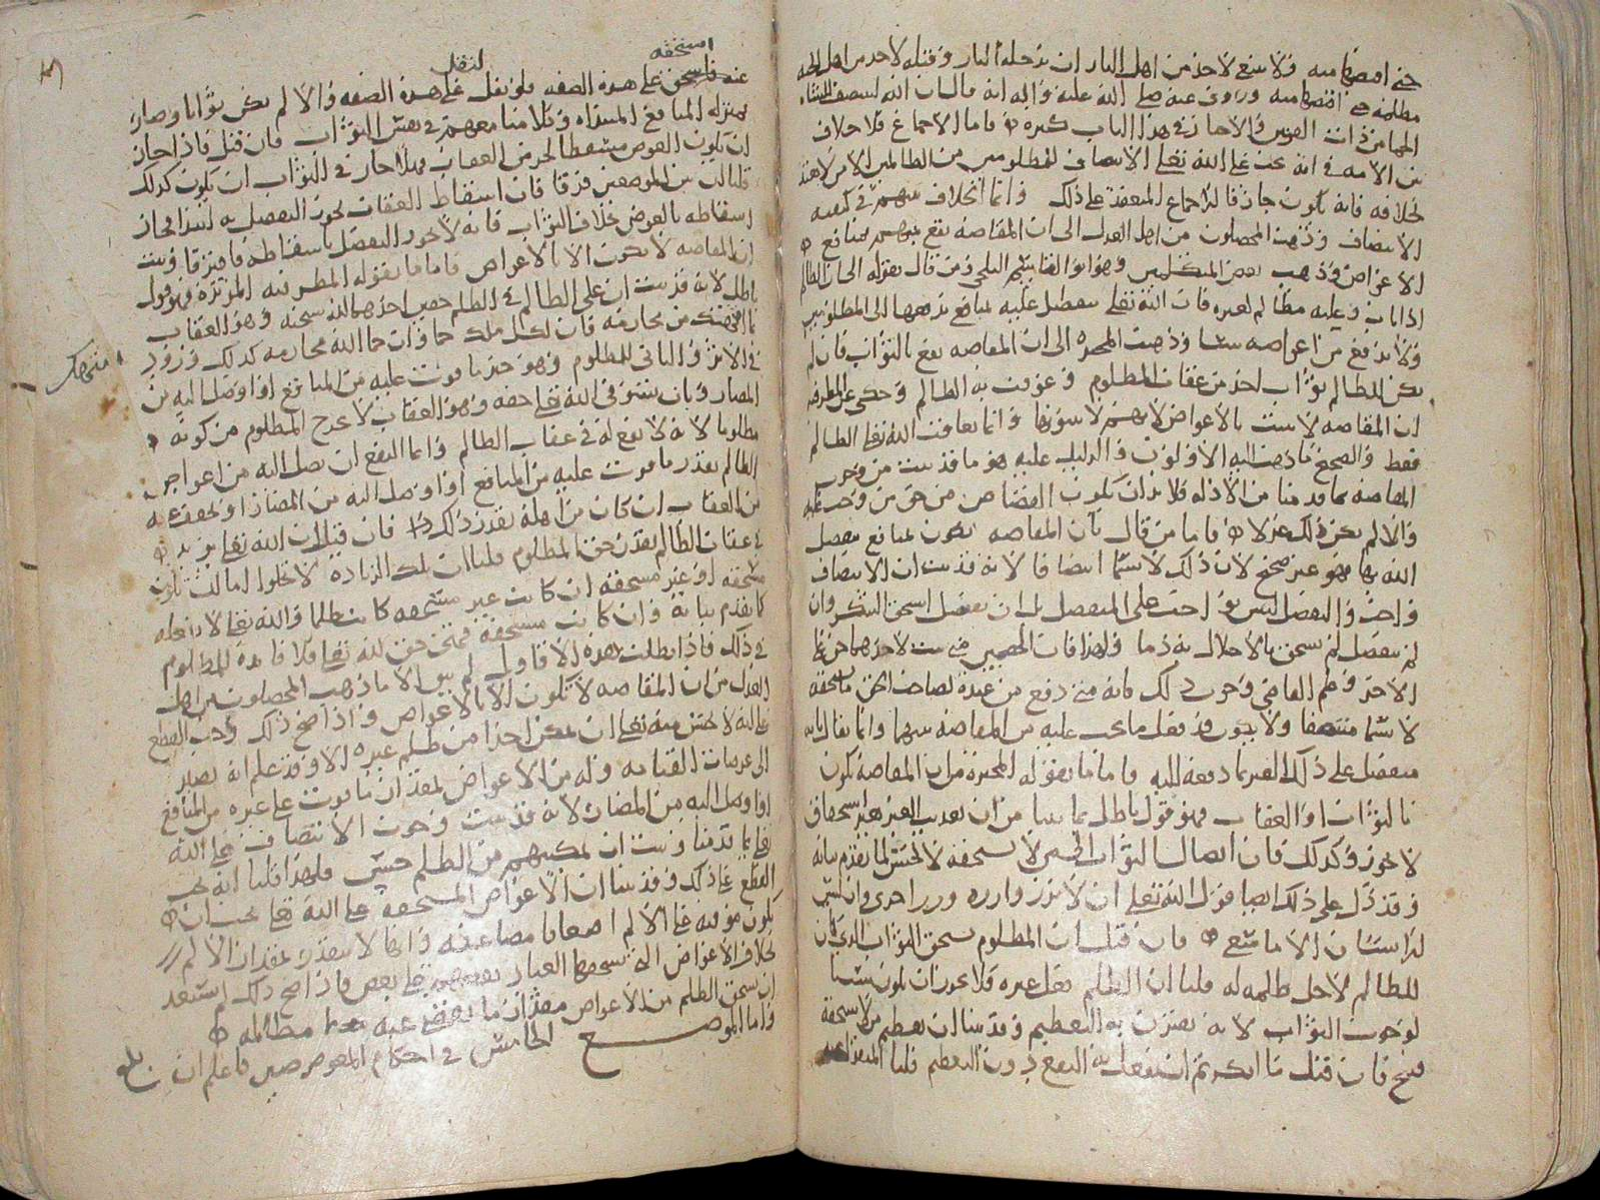 حتى اقتصها منه ولا ينبغي لاحد من اهل النار ان يدخل النار وقبله لاحد من اهل الجنة
مظلمة حتى اقتصها منه وروي عنه صلى الله عليه واله انه قال ان الله لينتصف للشاة
الجما من ذات القرن والاخبار في هذا الباب كثيرة واما الاجماع فلا خلاف
بين الامة في انه يجب على الله تعالى الانصاف للمظلومين من الظالمين
بخلافه فانه يكون خارقا للاجماع المنعقد على ذلك وانما الخلاف بينهم في كيفية
الانتصاف وذهب المحصلون من اهل العدل الى ان المقاصة تقع بينهم بمنافع
الاعواض وذهب بعض المتكلمين وهو ابو القاسم البلخي ومن قال بقوله الى ان الظالم
اذا تاب وعليه مظالم لغيره فان الله تعالى يتفضل عليه بمنافع يدفعها الى المظلومين
ولا يدفع من اعواضه شيئا وذهبت المجبرة الى ان المقاصة تقع بالثواب فان لم
يكن للظالم ثواب اخذ من عقاب المظلوم وعوقب به الظالم وحكي عن المطرفية
ان المقاصة لا تثبت بالاعواض لانهم لا يثبتونها وانما يعاقب الله تعالى الظالم
فقط والصحيح ما ذهب اليه الاولون والدليل عليه هو ما قد ثبت من وجوب
المقاصة بما قدمنا من الادلة فلا بد ان يكون القصاص من حق من وجب عليه
والا لم يكن ذلك عدلا فاما من قال بان المقاصة تكون بمنافع يتفضل
الله بها فهو غير صحيح لان ذلك لا يسمى انتصافا لانه قد ثبت ان الانتصاف
واجب والتفضل ليس بواجب على المتفضل بل ان تفضل استحق الشكر وان
لم يتفضل لم يستحق بالاخلال به ذما ولهذا فان الخصمين متى ثبت لاحدهما حق على
الاخر وعلم القاضي وجوب ذلك فانه متى دفع من عنده لصاحب الحق ما يستحقه
لا يسمى منتصفا ولا يكون قد فعل ما يجب عليه من المقاصة بينهما وانما يقال بانه
متفضل على ذلك الغير بما دفعه اليه واما ما يقوله المجبرة من ان المقاصة تكون
بالثواب او العقاب فهو قول باطل بما بينا من ان تعذيب الغير بغير استحقاق
لا يجوز وكذلك فان ايصال الثواب الى من لا يستحقه لا يحسن لما تقدم بيانه
وقد دل على ذلك ايضا قول الله تعالى ان لا تزر وازرة وزر اخرى وان ليس
للانسان الا ما سعى فان قيل ان المظلوم يستحق الثواب الذي كان
للظالم لاجل ظلمه له قلنا ان الظلم فعل غيره فلا يجوز ان يكون سببا
لوجوب الثواب لانه يقترن به التعظيم وقد بينا ان تعظيم من لا يستحقه
قبيح فان قيل ما انكرتم ان يفعل به النفع دون التعظيم قلنا المنفعة
استحقه
لنقل
عنه على هذه الصفة فلو نقل على هذه الصفة والا لم يكن ثوابا وصار
بمنزلة المنافع المبتداة وكلامنا معهم في نفس الثواب فان قيل فاذا جاز
ان يكون العوض مسقطا لجزء من العقاب فهلا جاز في الثواب ان يكون كذلك
قلنا ان بين الموضعين فرقا فان اسقاط العقاب يجوز التفضل به ابتداء فجاز
اسقاطه بالعوض بخلاف الثواب فانه لا يجوز التفضل باسقاطه فافترقا وثبت
ان المقاصة لا تكون الا بالاعواض فاما ما يقوله المطرفية المرتدة فهو قول
باطل لانه قد ثبت ان على الظالم في الظلم حقين احدهما لله سبحانه وهو العقاب
بما انتهك من محارمه فان لكل ملك حما وان حما الله محارمه كذلك ورد
في الاثر والثاني للمظلوم وهو حقه بما فوت عليه من المنافع او اوصل اليه من
المضار وبان يستوفي الله تعالى حقه وهو العقاب لا يخرج المظلوم من كونه
مظلوما لانه لا نفع له في عقاب الظالم وانما النفع ان يصل اليه من اعواض
الظالم بقدر ما فوت عليه من المنافع او اوصل اليه من المضار او يخفف عنه
من العقاب ان كان من اهله بقدر ذلك فان قيل ان الله تعالى يزيد
في عقاب الظالم بقدر حق المظلوم قلنا ان تلك الزيادة لا تخلوا اما ان تكون
مستحقة او غير مستحقة ان كانت غير مستحقة كانت ظلما والله تعالى لا يفعله
كما تقدم بيانه وان كانت مستحقة فهي حق لله تعالى فلا فائدة للمظلوم
في ذلك فاذا بطلت هذه الاقاويل لم يبق الا ما ذهب المحصلون من اهل
العدل من ان المقاصة لا تكون الا بالاعواض واذا صح ذلك وجب القطع
على انه لا يحسن منه تعالى ان يمكن احدا من ظلم غيره الا وقد علم انه يصير
الى عرصات القيامة وله من الاعواض بمقدار ما فوت على غيره من المنافع
او اوصل اليه من المضار لانه قد ثبت وجوب الانتصاف على الله
تعالى بما قدمنا وثبت ان تمكينهم من الظلم حسن فلهذا قلنا انه يجب
القطع على ذلك وقد بينا ان الاعواض المستحقة على الله تعالى يجب ان
تكون موفية على الالم اضعافا مضاعفة وانها لا تتقدر بمقدار الالم
بخلاف الاعواض التي يستحقها العباد بعضهم على بعض فاذا صح ذلك لم يستبعد
ان يستحق الظالم من الاعواض مقدار ما يقضى عنه مظالمه
واما الموضع الخامس في احكام المعوضين فاعلم ان
انتهك
بلغ